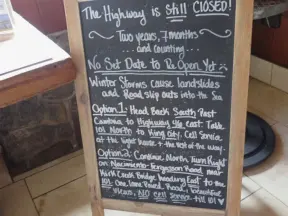 The Highway is Still CLOSED!
Two years, 7 months
...and counting...
No Set Date to Re Open Yet
Winter Storms cause landslides
and Road slip outs into the Sea
Option 1: Head Back South Past
Cambria to Highway 46 east. Take
101 North to King City. Cell Service
at the light house + the rest of the way.
Option 2: Continue North, Turn Right
on Nacimiento-Fergusson Road near
Kirk Creek Bridge heading East to the
101. One lane Paved Road, beautiful
views, NO cell service till 101